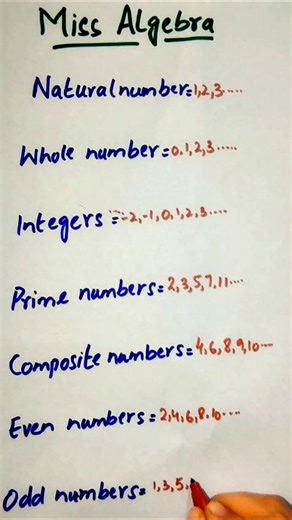 Miss Algebra
Natural number=1,2,3.....
Whole number=0.1,2,3.....
Integers=...-2,-1,0,1,2,3....
Prime numbers=2,3,5,7,11...
Composite numbers=4,6,8,9,10...
Even numbers=2,4,6,8.10....
Odd numbers=1,3,5,